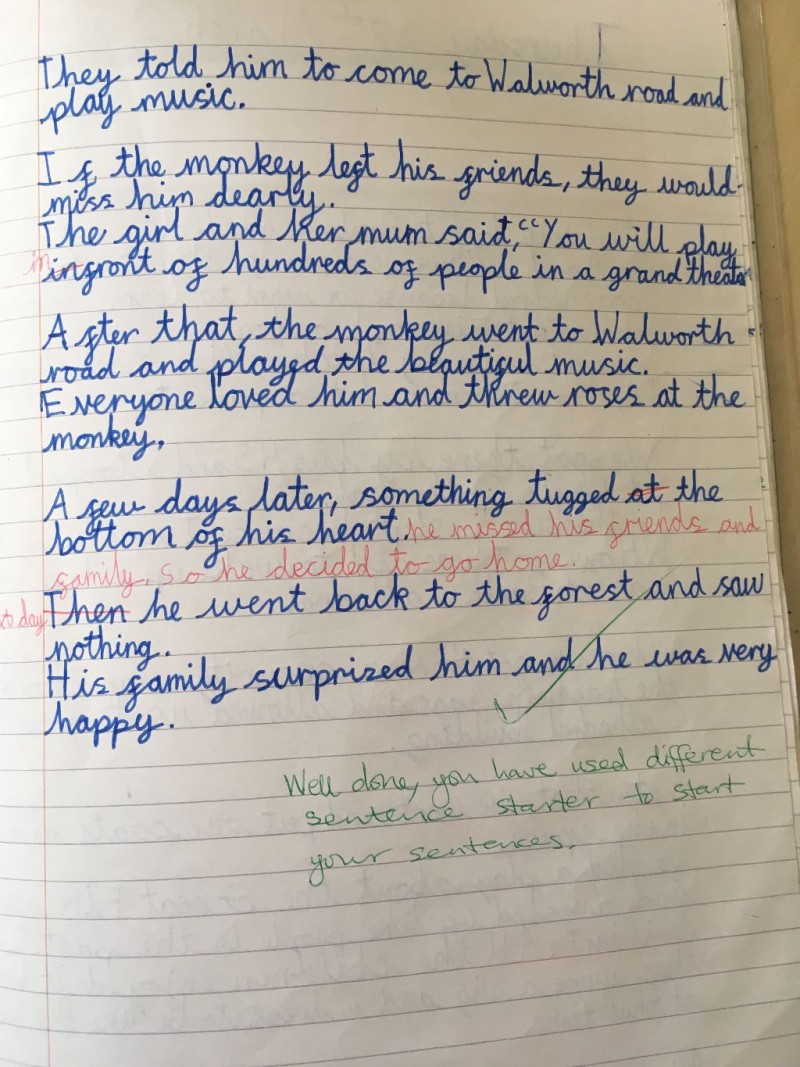 They told him to come to Walworth road and
play music.
If the monkey left his friends, they would
miss him dearly.
The girl and her mum said, "You will play
in infront of hundreds of people in a grand theater
After that, the monkey went to Walworth
road and played the beautiful music.
Everyone loved him and threw roses at the
monkey.
A few days later, something tugged at the
bottom of his heart. he missed his friends and
family. So he decided to go home.
to day Then he went back to the forest and saw
nothing.
His family surprized him and he was very
happy.
Well done, you have used different
sentence starter to start
your sentences.